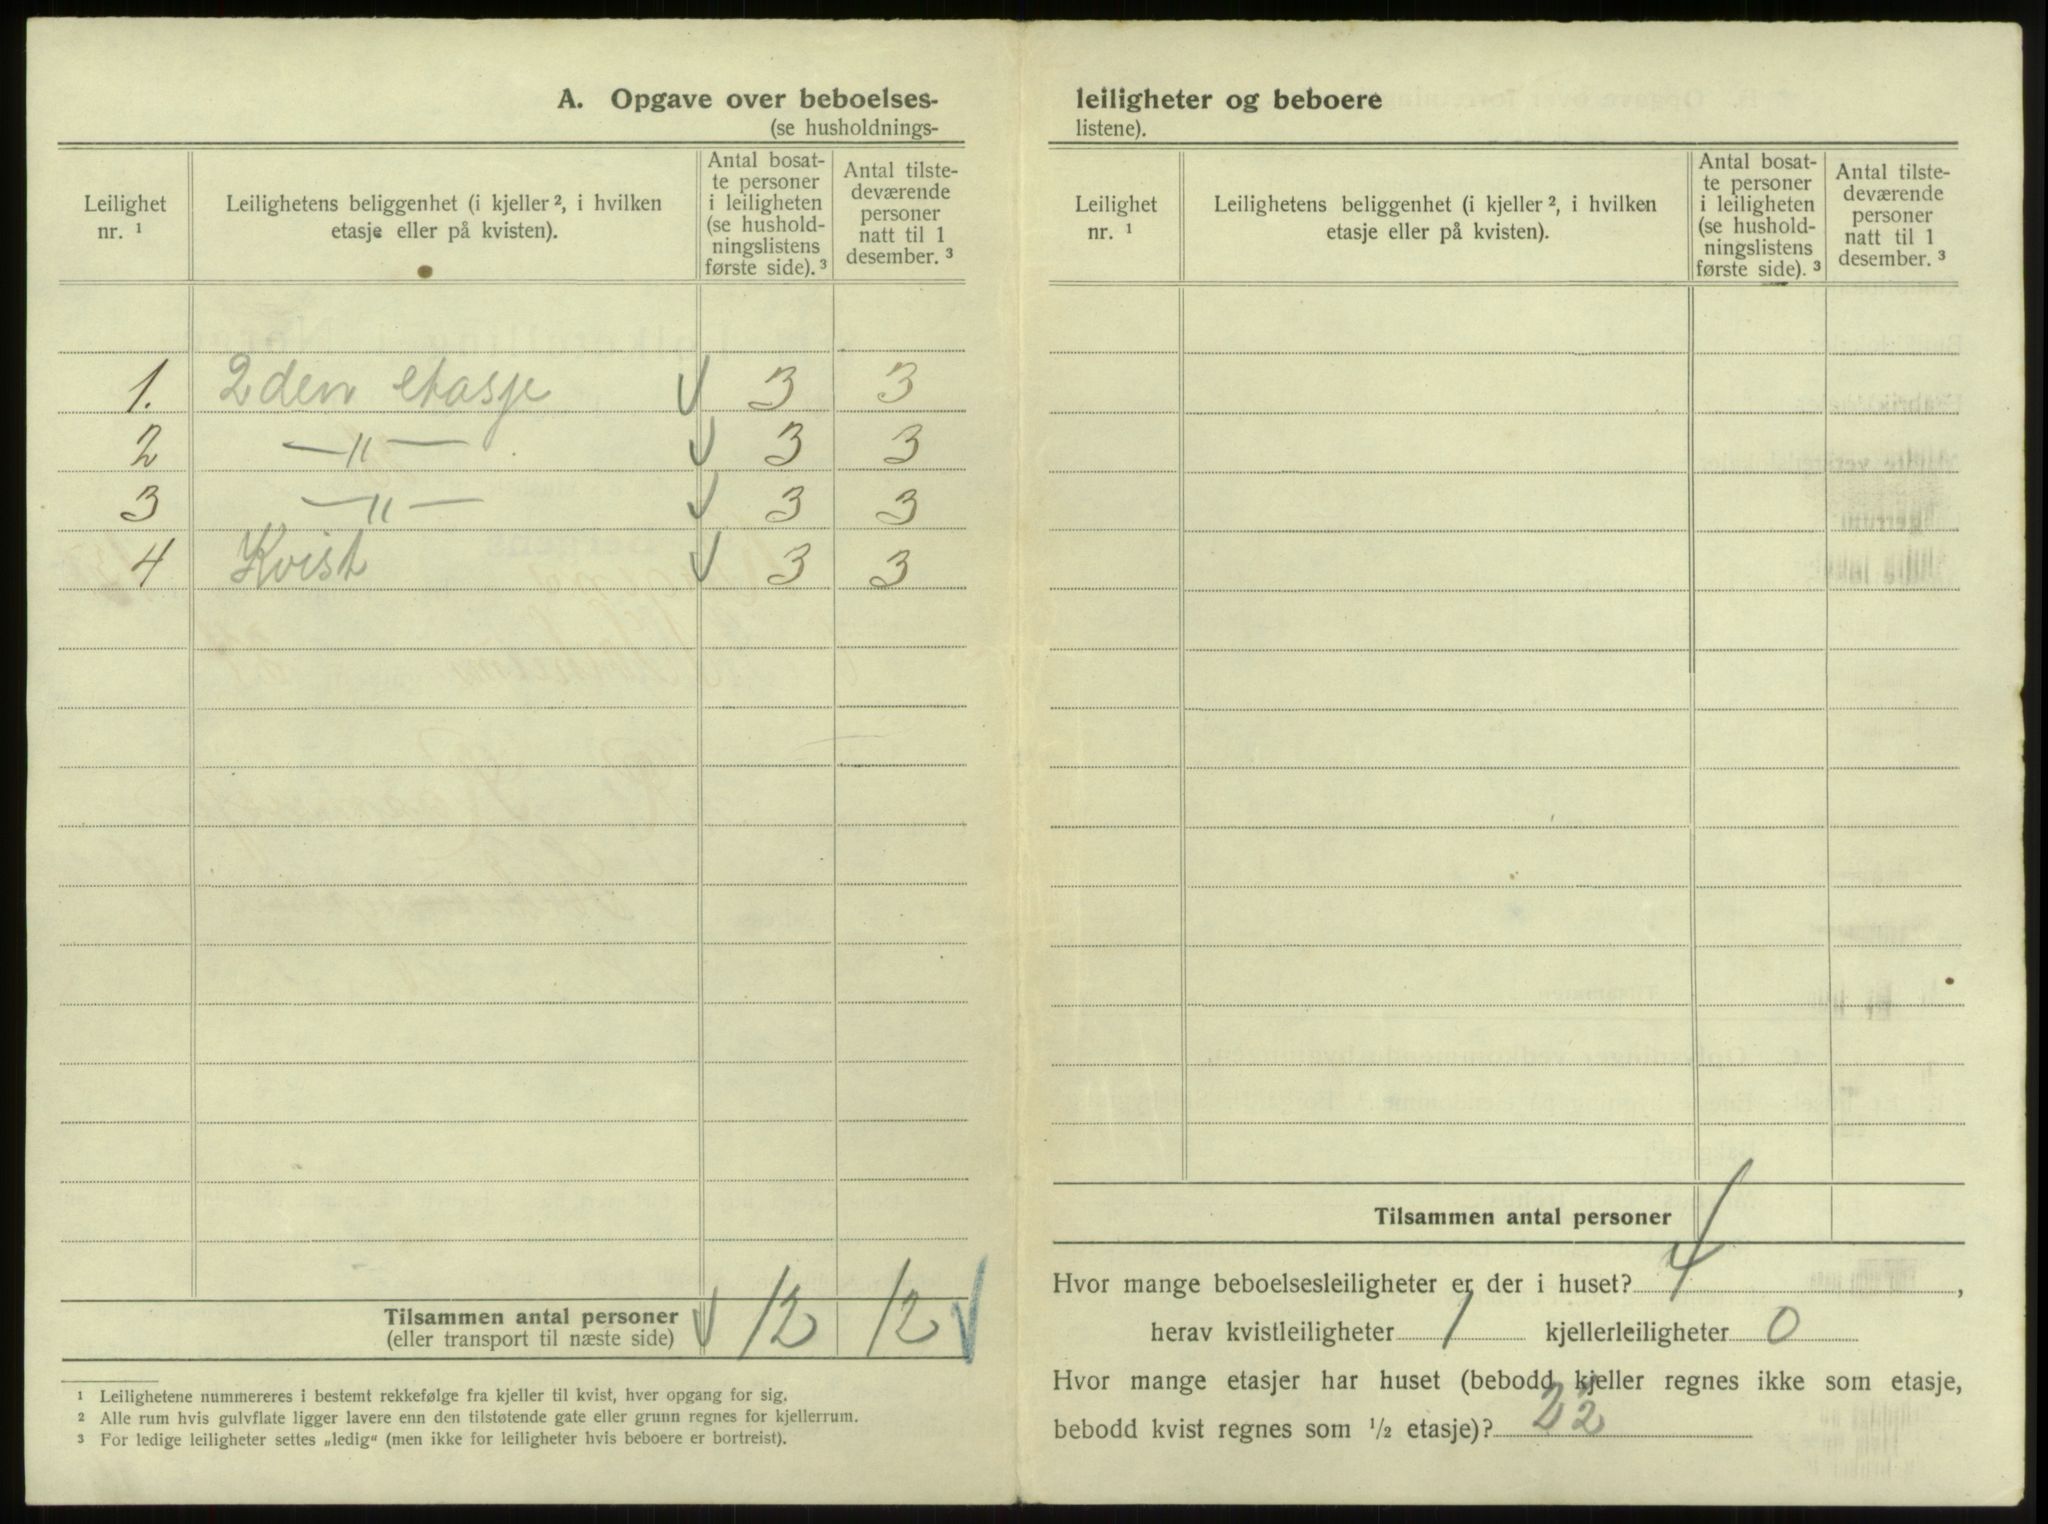 A. Opgave over beboelses-
(se husholdnings-
Leilighet nr. ¹
Leilighetens beliggenhet (i kjeller ², i hvilken etasje eller på kvisten).
Antal bosatte personer i leiligheten (se husholdningslistens første side). ³
Antal tilstedeværende personer natt til 1 desember. ³
1. 2den etasje 3 3
2 —〃— 3 3
3 —〃— 3 3
4 Kvist 3 3
Tilsammen antal personer 12 12
(eller transport til næste side)
¹ Leilighetene nummereres i bestemt rekkefølge fra kjeller til kvist, hver opgang for sig.
² Alle rum hvis gulvflate ligger lavere enn den tilstøtende gate eller grunn regnes for kjellerrum.
³ For ledige leiligheter settes „ledig" (men ikke for leiligheter hvis beboere er bortreist).
leiligheter og beboere
listene).
Leilighet nr. ¹
Leilighetens beliggenhet (i kjeller ², i hvilken etasje eller på kvisten).
Antal bosatte personer i leiligheten (se husholdningslistens første side). ³
Antal tilstedeværende personer natt til 1 desember. ³
Tilsammen antal personer
Hvor mange beboelsesleiligheter er der i huset? 4,
herav kvistleiligheter 1 kjellerleiligheter 0
Hvor mange etasjer har huset (bebodd kjeller regnes ikke som etasje,
bebodd kvist regnes som ½ etasje)?